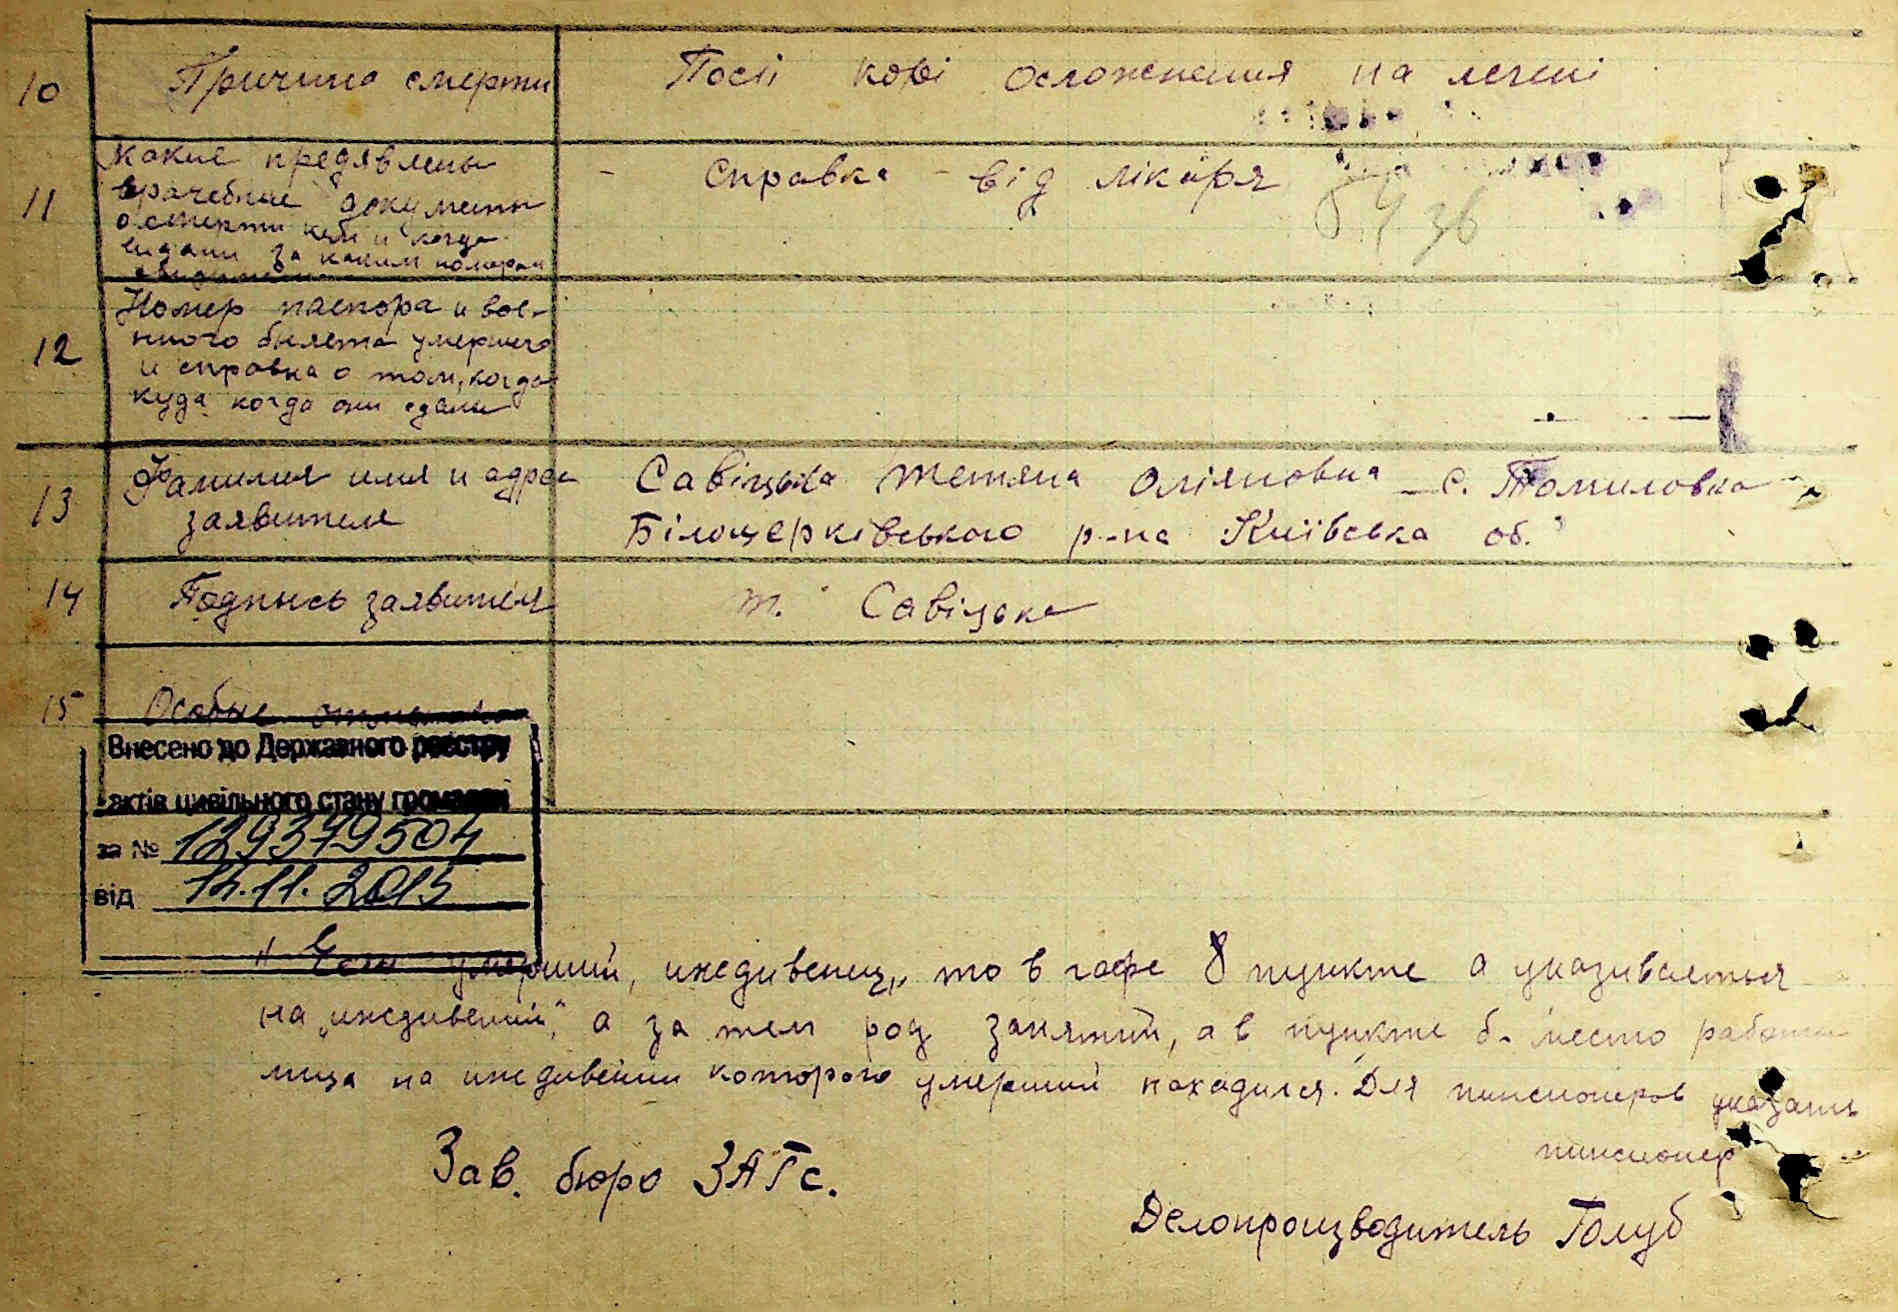 10 Причина смерти Посli кові осложнения на легені
11 Какие предявлены
врачебные документы
о смерти кем и когда
видани за каким номером
- Справка - від лікаря
12 Номер паспора и вое-
нного билета умершего
и справка о том, когда
куда когда они сдани
13 Фамилия имя и адрес
заявителя
Савіцька Тетяна Оліяновна - с. Томиловка
Білоцерківського р-на Київська об.
14 Подпись заявителя Т. Савіцька
15 Особые отметки
Внесено до Державного реєстру
актів цивільного стану громадян
за № 129379504
від 14.11.2015
" Если умерший, иждивенец, то в гафе 8 пункте а указивається
на „иждивении", а за тем род занятий, а в пункте б. место работи
лица на иждивении которого умерший находился. Для пинсионеров указать
пинсионер
Зав. бюро ЗАГс.
Делопроизводитель Голуб